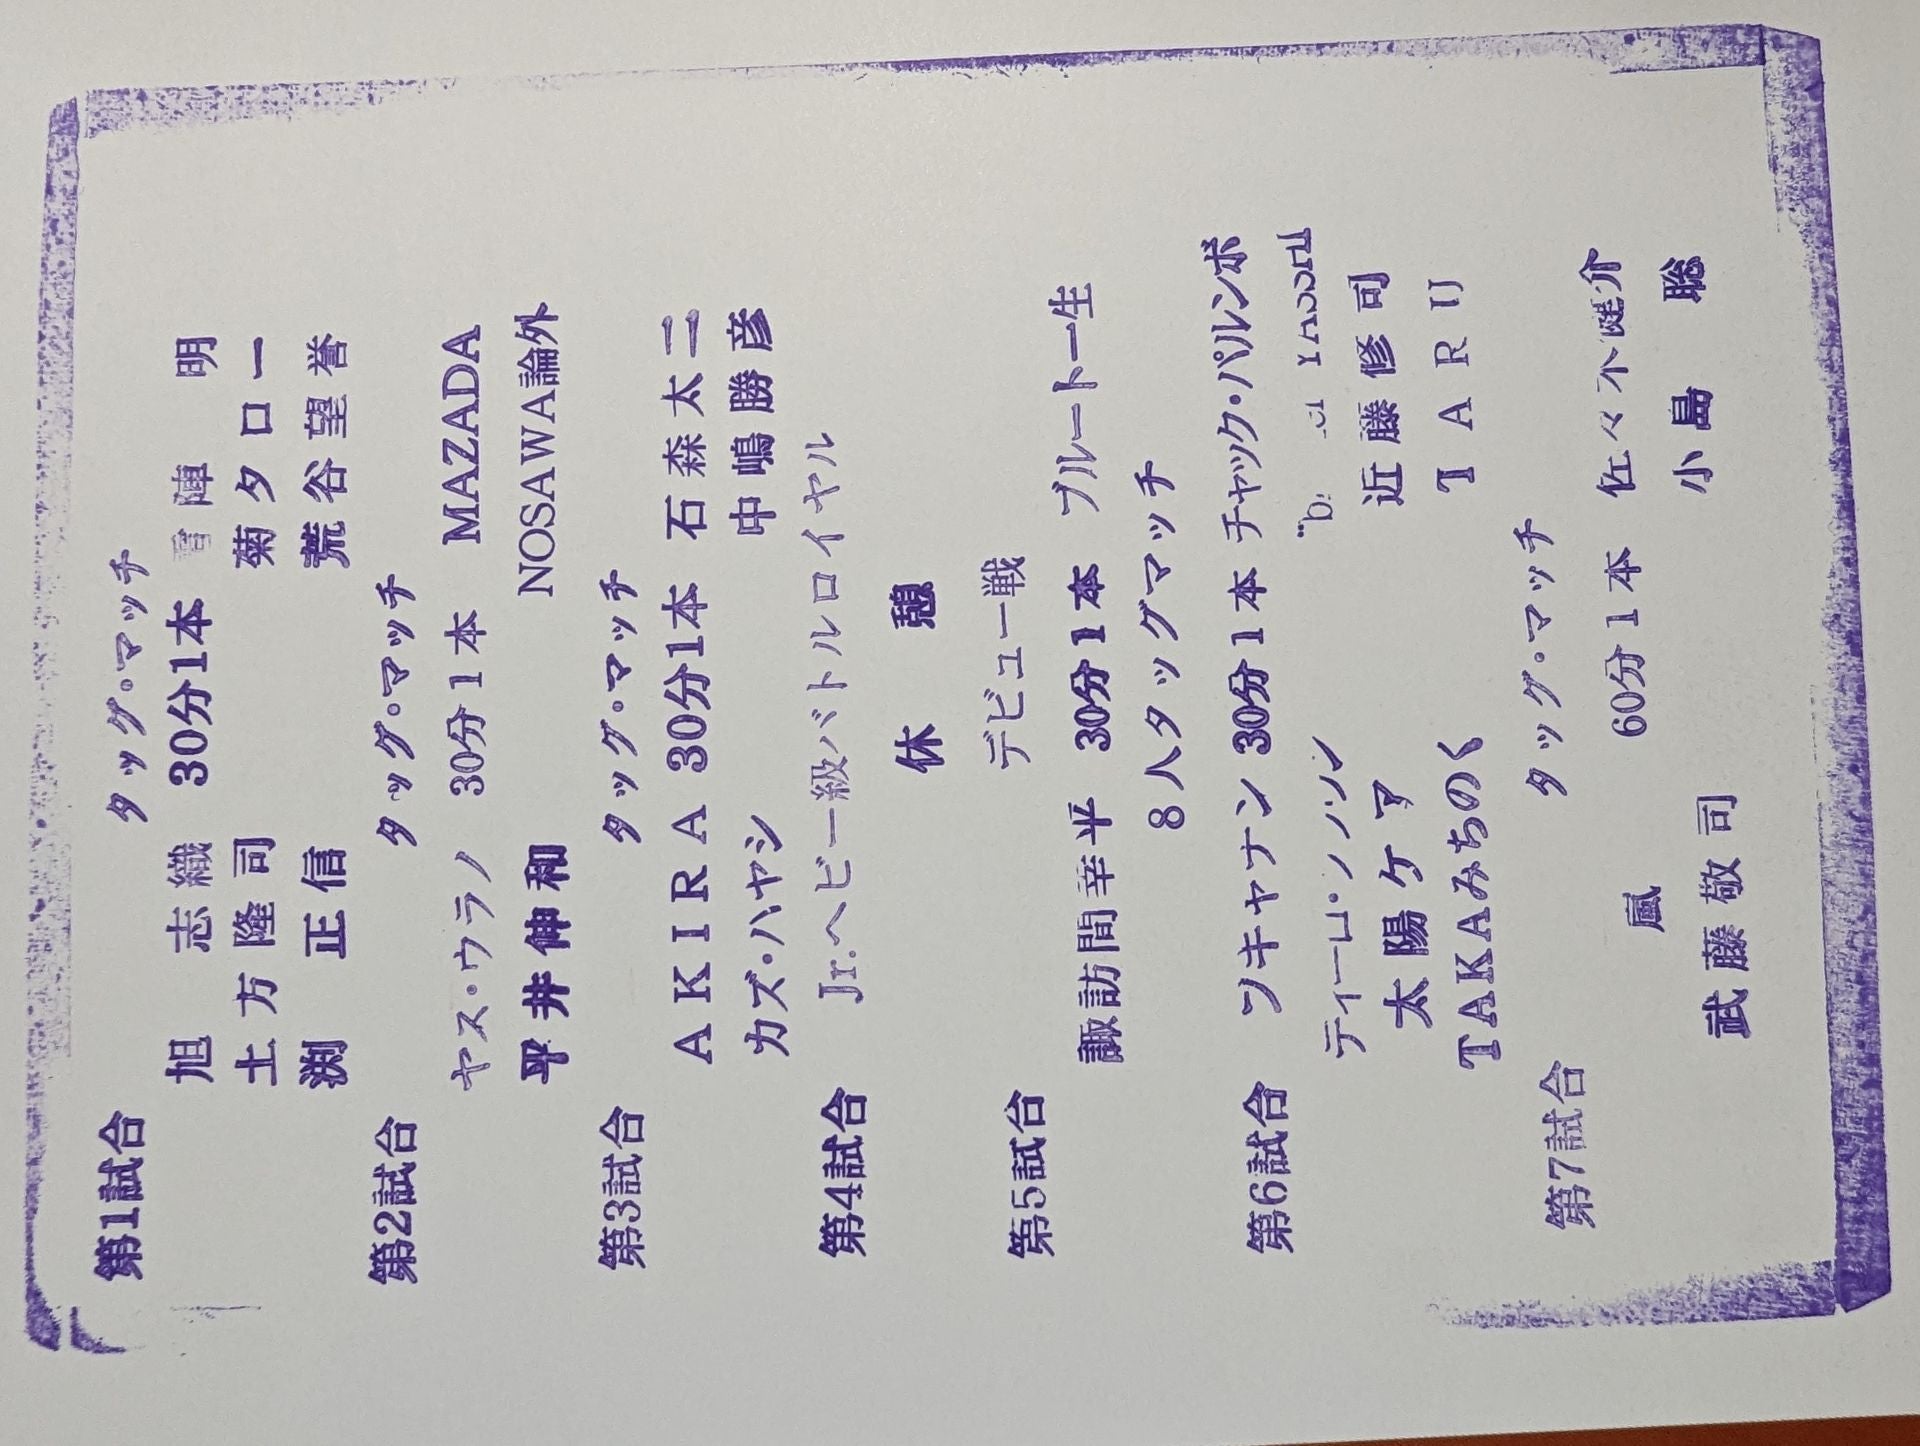 第1試合
タッグ・マッチ
旭 志織 30分1本 雷陣 明
土方隆司 菊タロー
渕 正信 荒谷望誉
第2試合
タッグ・マッチ
ヤス・ウラノ 30分1本 MAZADA
平井伸和 NOSAWA論外
第3試合
タッグ・マッチ
AKIRA 30分1本 石森太二
カズ・ハヤシ 中嶋勝彦
第4試合 Jr.ヘビー級バトルロイヤル
休 憩
第5試合
デビュー戦
諏訪間幸平 30分1本 ブルート一生
8人タッグマッチ
第6試合 ブキャナン 30分1本 チャック・パルンボ
ディーロ・ブラウン
太陽ケア 近藤修司
TAKAみちのく TARU
第7試合
タッグ・マッチ
嵐 60分1本 佐々木健介
武藤敬司 小島 聡